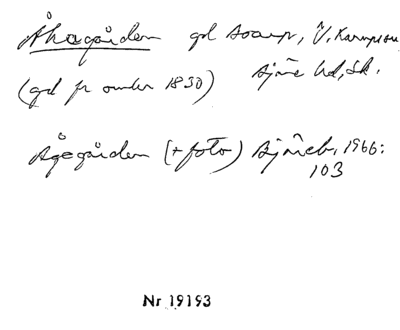 Åhagården gd Boarp, V. Karup sn
(gd fr omkr 1830) Bjäre hd, Sk.
Ågegården (+ foto) Bjäreb. 1966:
103
Nr 19193